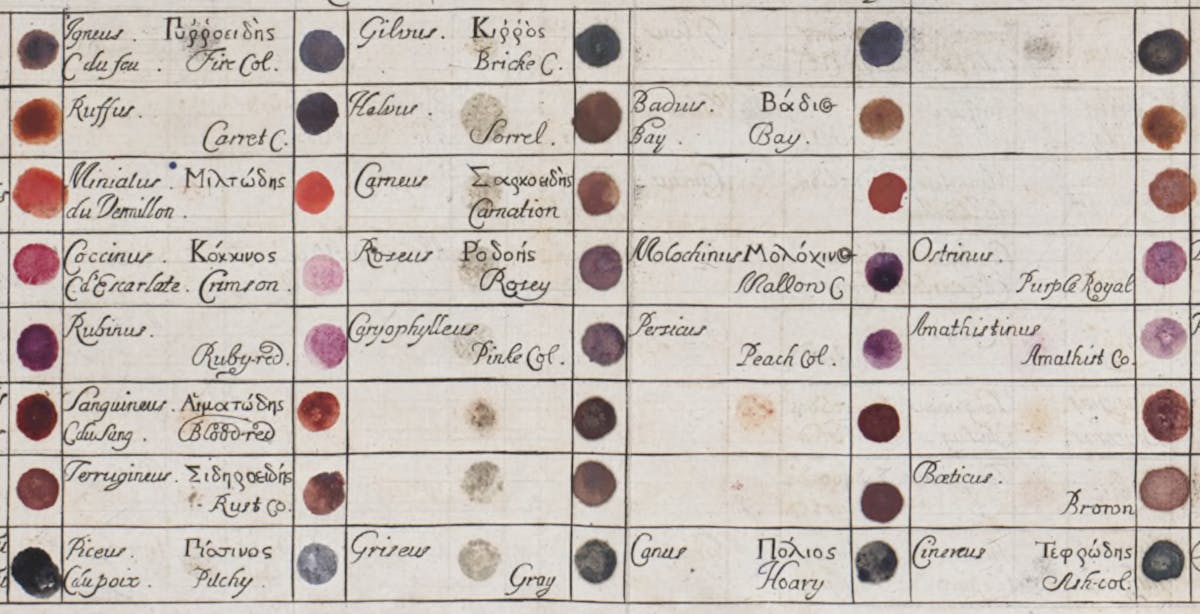 Igneus. Πυῤῥοειδὴς
C du feu. Fire Col.
Gilvus. Κιῤῥὸς
Bricke C.
Ruffus.
Carret C.
Helvus.
Sorrel.
Badius. Βάδιος
Bay. Bay.
Miniatus. Μιλτώδης
du Vermillon.
Carneus. Σαρκοειδὴς
Carnation
Coccinus. Κόκκινος
C d'Escarlate. Crimson.
Roseus Ροδοής
Rosey
Molochinus Μολόχινος
Mallow C
Ostrinus.
Purple Royal
Rubinus.
Ruby-red.
Caryophylleus
Pinke Col.
Persicus
Peach Col.
Amathistinus
Amathist Co.
Sanguineus. Αἱματώδης
C du Sang. Blood-red
Ferrugineus. Σιδηροειδής
Rust Co.
Bœticus.
Brown
Piceus. Πίσσινος
C du poix. Pitchy.
Griseus
Gray
Canus Πόλιος
Hoary
Cinereus Τεφρώδης
Ash-col.